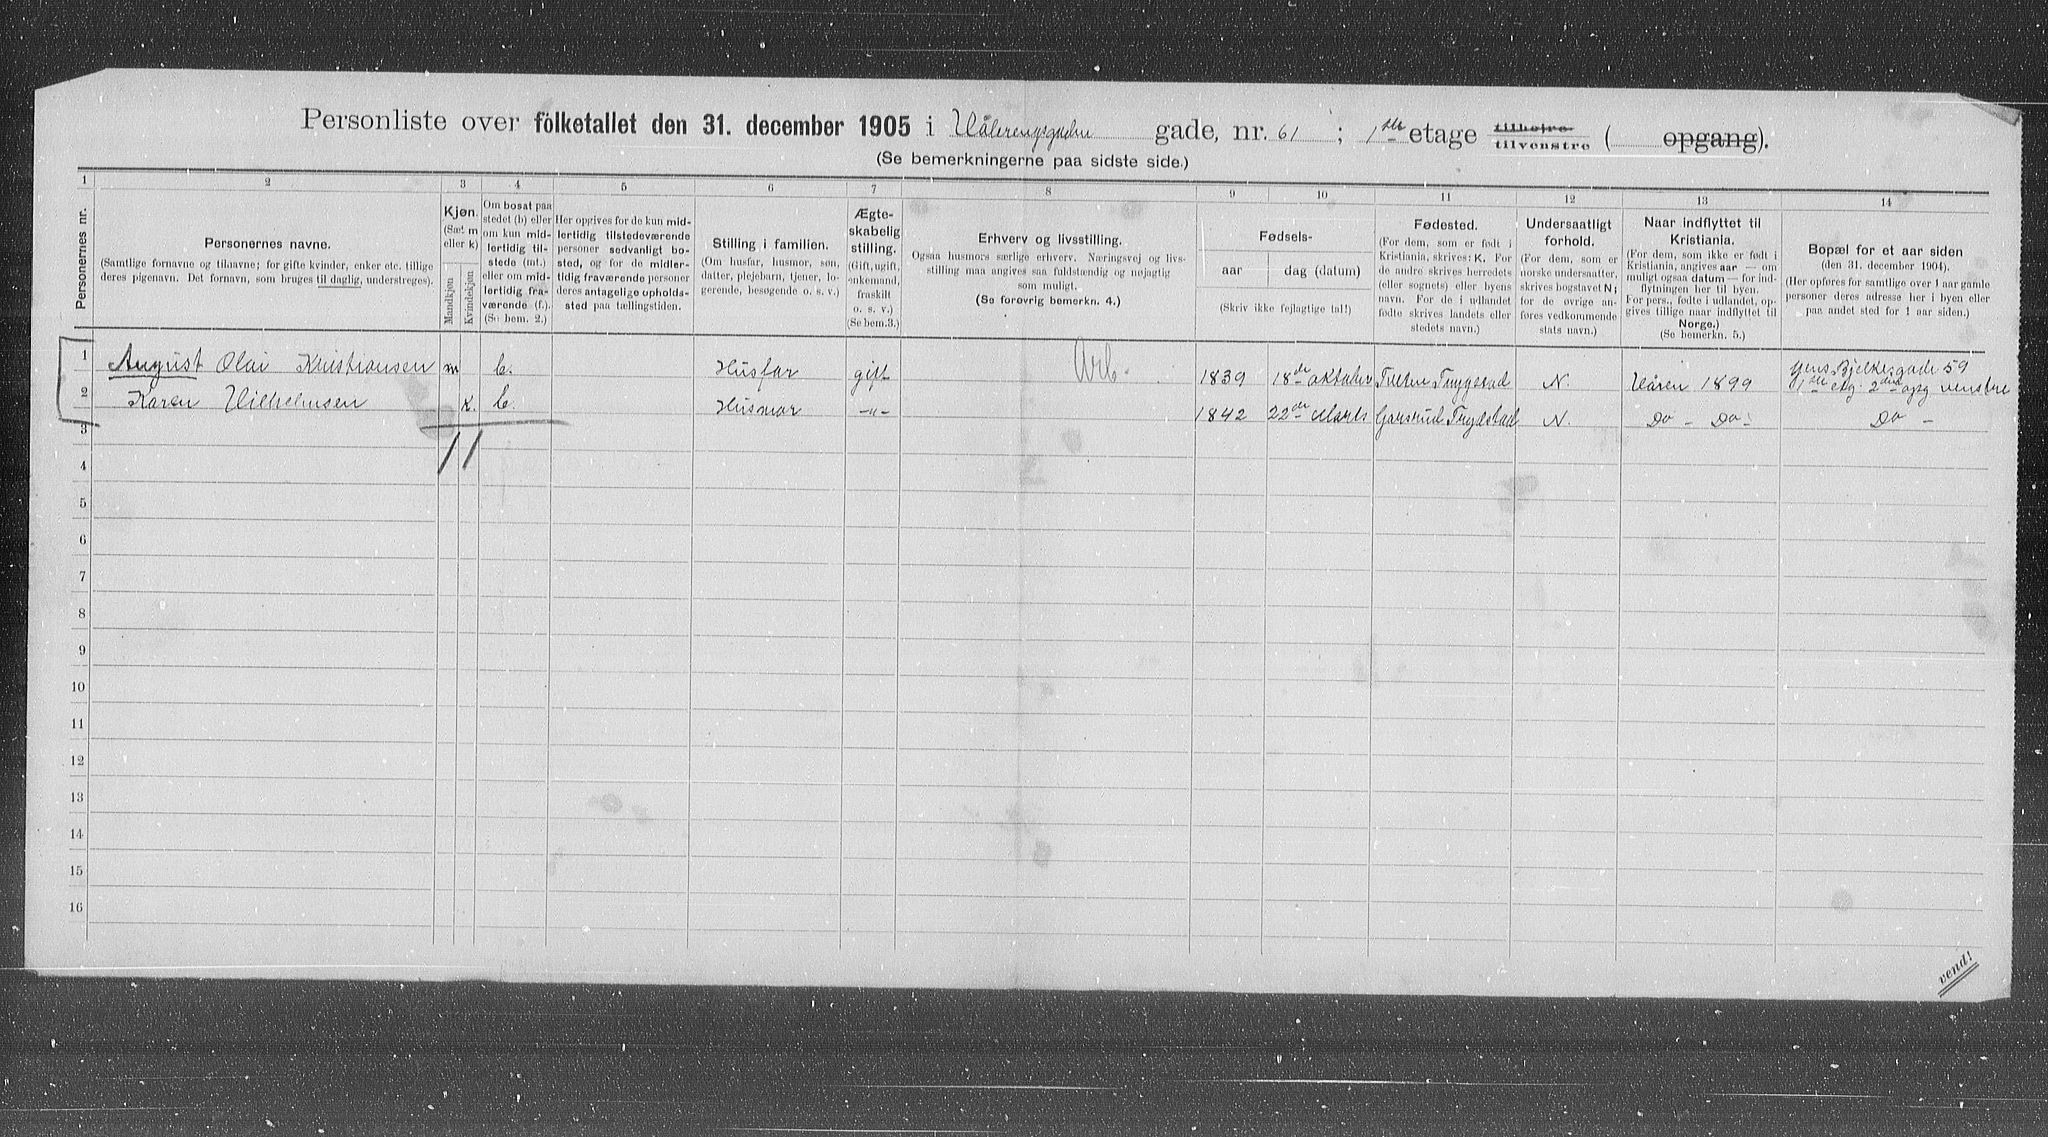 Personliste over folketallet den 31. december 1905 i Vålerengsgaden gade, nr. 61 ; 1ste etage tilhøjre tilvenstre ( opgang).
(Se bemerkningerne paa sidste side.)
1 2 3 4 5 6 7 8 9 10 11 12 13 14
Personernes nr.
Personernes navne.
(Samtlige fornavne og tilnavne; for gifte kvinder, enker etc. tillige
deres pigenavn. Det fornavn, som bruges til daglig, understreges).
Kjøn.
(Sæt m
eller k)
Mandkjøn
Kvindekjøn
Om bosat paa
stedet (b) eller
om kun mid-
lertidig til-
stede (mt.)
eller om mid-
lertidig fra-
værende (f.).
(Se bem. 2.)
Her opgives for de kun mid-
lertidig tilstedeværende
personer sedvanligt bo-
sted, og for de midler-
tidig fraværende personer
deres antagelige opholds-
sted paa tællingstiden.
Stilling i familien.
(Om husfar, husmor, søn,
datter, plejebarn, tjener, lo-
gerende, besøgende o. s. v.)
Ægte-
skabelig
stilling.
(Gift, ugift,
enkemand,
fraskilt
o. s. v.)
(Se bem.3.)
Erhverv og livsstilling.
Ogsaa husmors særlige erhverv. Næringsvej og livs-
stilling maa angives saa fuldstændig og nøjagtig
som muligt.
(Se forøvrig bemerkn. 4.)
Fødsels-
aar dag (datum)
(Skriv ikke fejlagtige tal!)
Fødested.
(For dem, som er født i
Kristiania, skrives: K. For
de andre skrives herredets
(eller sognets) eller byens
navn. For de i udlandet
fødte skrives landets eller
stedets navn.)
Undersaatligt
forhold.
(For dem, som er
norske undersaatter,
skrives bogstavet N;
for de øvrige an-
føres vedkommende
stats navn.)
Naar indflyttet til
Kristiania.
(For dem, som ikke er født i
Kristiania, angives aar — om
muligt ogsaa datum — for ind-
flytningen her til byen.
For pers., fødte i udlandet, op-
gives tillige naar indflyttet til
Norge.)
(Se bemerkn. 5.)
Bopæl for et aar siden
(den 31. december 1904).
(Her opføres for samtlige over 1 aar gamle
personer deres adresse her i byen eller
paa andet sted for 1 aar siden.)
1 August Olai Kristiansen m b. Husfar gift Arb. 1839 18de oktober Trygstad N. Våren 1899 Jens Bjelkesgade 59
1ste etg. 2den opg venstre
2 Karen Vilhelmsen k. b. Husmor -"- 1842 22de Marts Trygstad N. Do - Do - Do -
3
4
5
6
7
8
9
10
11
12
13
14
15
16
vend!